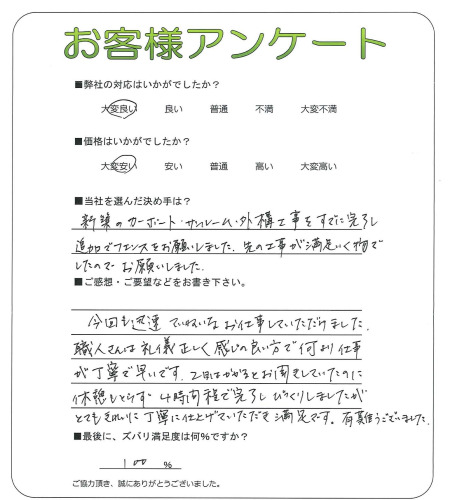 お客様アンケート
■弊社の対応はいかがでしたか？
大変良い 良い 普通 不満 大変不満
■価格はいかがでしたか？
大変安い 安い 普通 高い 大変高い
■当社を選んだ決め手は？
新築のカーポート・サンルーム・外構工事をすでに完了し
追加でフェンスをお願いしました。先の工事が満足いく物で
したので お願いしました。
■ご感想・ご要望などをお書き下さい。
今回も迅速 ていねいな お仕事していただけました。
職人さんは礼儀正しく感じの良い方で何より仕事
が丁寧で早いです。2日はかかるとお聞きしていたのに
休憩もとらず 4時間程で完了し びっくりしましたが
とてもきれいに丁寧に仕上げていただき満足です。有難うございました。
■最後に、ズバリ満足度は何%ですか？
100 %
ご協力頂き、誠にありがとうございました。